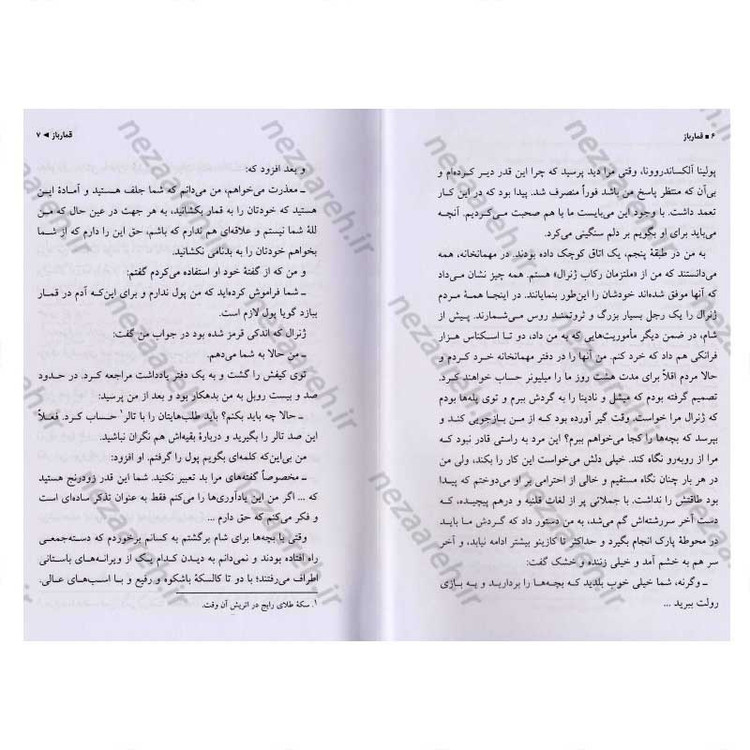 ۶ ■ قمارباز
پولینا آلکساندروونا، وقتی مرا دید پرسید که چرا این قدر دیر کرده‌ام و
بی‌آن که منتظر پاسخ من باشد فوراً منصرف شد. پیدا بود که در این کار
تعمد داشت. با وجود این می‌بایست ما با هم صحبت می‌کردیم. آنچه
می‌باید برای او بگویم بر دلم سنگینی می‌کرد.
به من در طبقهٔ پنجم، یک اتاق کوچک داده بودند. در مهمانخانه، همه
می‌دانستند که من از «ملتزمان رکاب ژنرال» هستم. همه چیز نشان می‌داد
که آنها موفق شده‌اند خودشان را این‌طور بنمایانند. در اینجا همهٔ مردم
ژنرال را یک رجل بسیار بزرگ و ثروتمند روس می‌شمارند. پیش از
شام، در ضمن دیگر مأموریت‌هایی که به من داد، دو تا اسکناس هزار
فرانکی هم داد که خرد کنم. من آنها را در دفتر مهمانخانه خرد کردم و
حالا مردم اقلاً برای مدت هشت روز ما را میلیونر حساب خواهند کرد.
تصمیم گرفته بودم که میشل و نادینا را به گردش ببرم و توی پله‌ها بودم
که ژنرال مرا خواست. وقت گیر آورده بود که از من بازجویی کند و
بپرسد که بچه‌ها را کجا می‌خواهم ببرم؟ این مرد به راستی قادر نبود که
مرا از روبه‌رو نگاه کند. خیلی دلش می‌خواست این کار را بکند، ولی من
در هر بار چنان نگاه مستقیم و خالی از احترامی بر او می‌دوختم که پیدا
بود طاقتش را نداشت. با جملاتی پر از لغات قلنبه و درهم پیچیده، که
دست آخر سررشته‌اش گم می‌شد، به من دستور داد که گردش ما باید
در محوطهٔ پارک انجام بگیرد و حداکثر تا کازینو بیشتر ادامه نیابد، و آخر
سر هم به خشم آمد و خیلی زننده و خشک گفت:
ـ وگرنه، شما خیلی خوب بلدید که بچه‌ها را بردارید و به بازی
رولت ببرید ...
قمارباز ◄ ۷
و بعد افزود که:
ـ معذرت می‌خواهم، من می‌دانم که شما جلف هستید و آمادهٔ این
هستید که خودتان را به قمار بکشانید، به هر جهت در عین حال که من
للهٔ شما نیستم و علاقه‌ای هم ندارم که باشم، حق این را دارم که از شما
بخواهم خودتان را به بدنامی نکشانید.
و من که از گفتهٔ خود او استفاده می‌کردم گفتم:
ـ شما فراموش کرده‌اید که من پول ندارم و برای این‌که آدم در قمار
ببازد گویا پول لازم است.
ژنرال که اندکی قرمز شده بود در جواب من گفت:
ـ من حالا به شما می‌دهم.
توی کیفش را گشت و به یک دفتر یادداشت مراجعه کرد. در حدود
صد و بیست روبل به من بدهکار بود و بعد از من پرسید:
ـ حالا چه باید بکنم؟ باید طلب‌هایتان را با تالر¹ حساب کرد. فعلاً
این صد تالر را بگیرید و دربارهٔ بقیه‌اش هم نگران نباشید.
من بی‌این‌که کلمه‌ای بگویم پول را گرفتم. او افزود:
ـ مخصوصاً گفته‌های مرا بد تعبیر نکنید. شما این قدر زودرنج هستید
که ... اگر من این یادآوری‌ها را می‌کنم فقط به عنوان تذکر ساده‌ای است
و فکر می‌کنم که حق دارم ...
وقتی با بچه‌ها برای شام برگشتم به کسانی برخوردم که دسته‌جمعی
راه افتاده بودند و نمی‌دانم به دیدن کدام یک از ویرانه‌های باستانی
اطراف می‌رفتند؛ با دو تا کالسکهٔ باشکوه و رفیع و با اسب‌های عالی.
۱. سکهٔ طلای رایج در اتریش آن وقت.
nezaareh.ir
nezaareh.ir
nezaareh.ir
nezaareh.ir
nezaareh.ir
nezaareh.ir
nezaareh.ir
nezaareh.ir